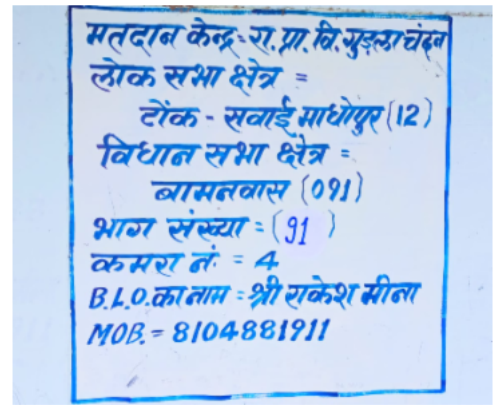 मतदान केन्द्र = रा. प्रा. वि. गुड़ला चंदन
लोक सभा क्षेत्र =
टोंक - सवाई माधोपुर (12)
विधान सभा क्षेत्र =
बामनवास (091)
भाग संख्या = (91)
कमरा नं. = 4
B.L.O. का नाम = श्री राकेश मीना
MOB. = 8104881911